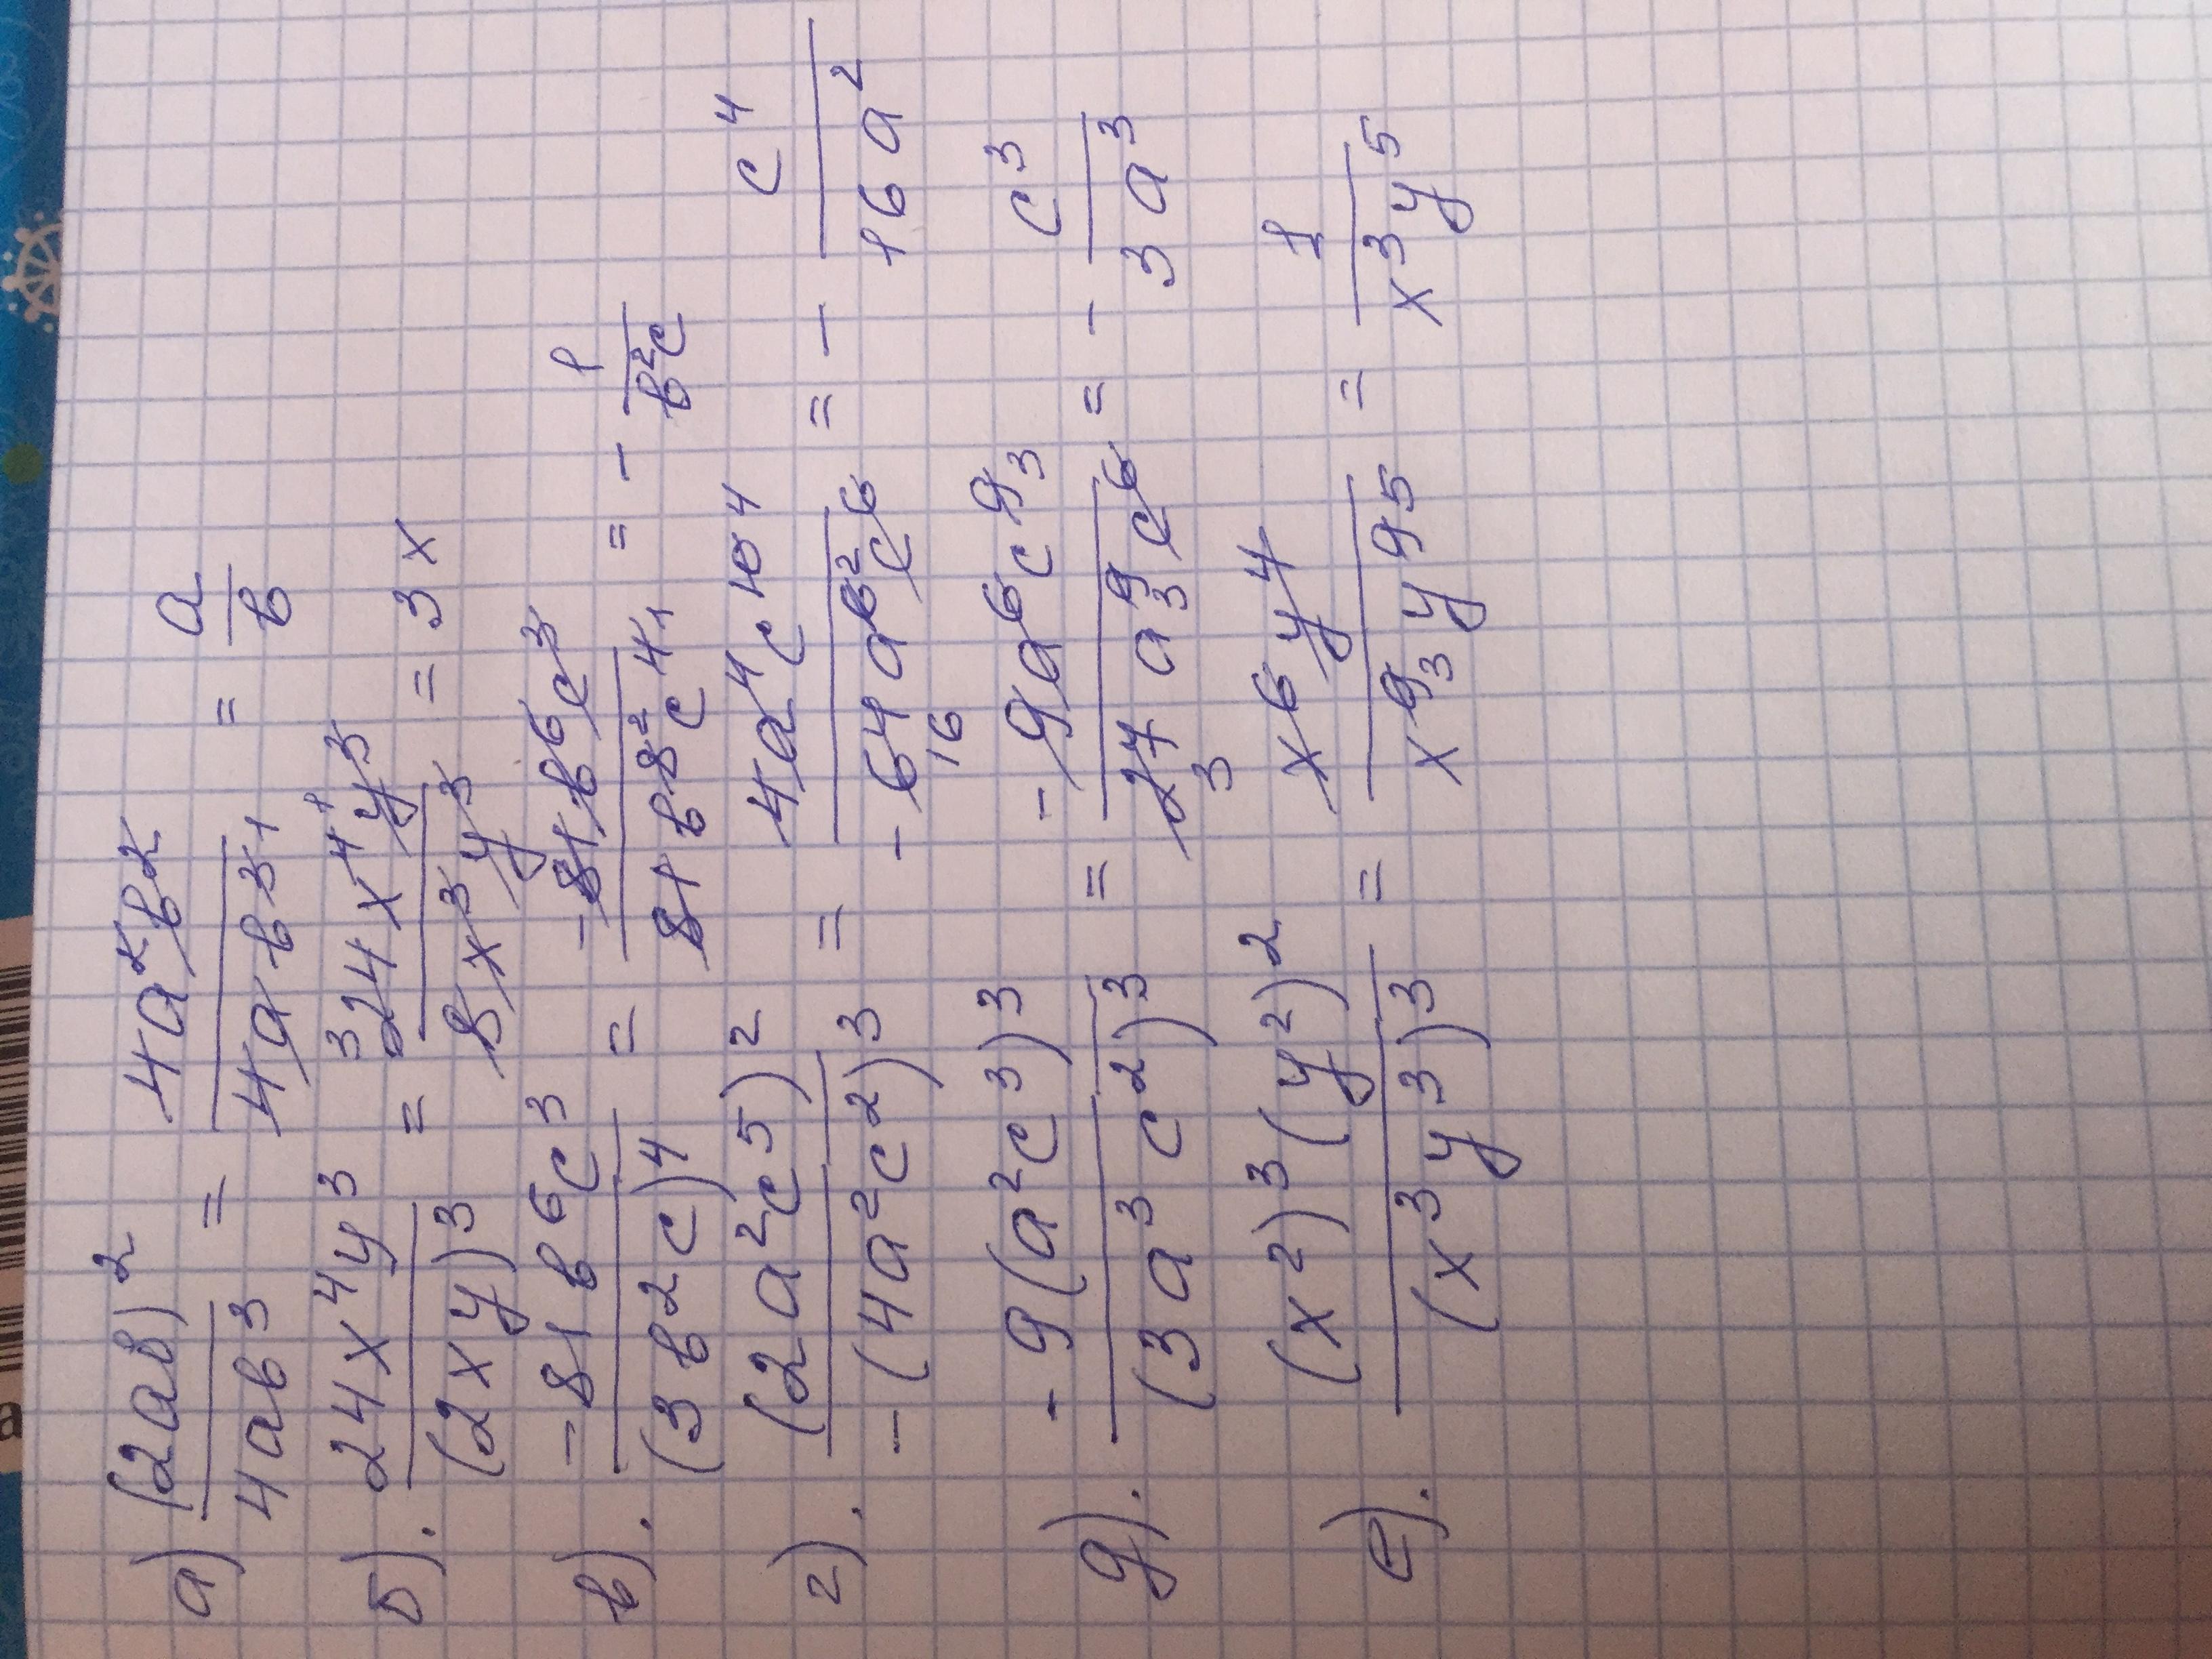 а) (2ab)²/4ab³ = 4a²b²/4ab³ ¹ = a/b
б). 24x⁴y³/(2xy)³ = ³24x⁴ ¹y³/8x³y³ = 3x
в). -81b⁶c³/(3b²c)⁴ = -81b⁶c³/81b⁸ ²c⁴ ¹ = - 1/b²c
г). (2a²c⁵)²/-(4a²c²)³ = 4a⁴c¹⁰ ⁴/-64 16 a⁶ ²c⁶ = - c⁴/16a²
д). -9(a²c³)³/(3a³c²)³ = -9a⁶c⁹ ³/27 3 a⁹ ³c⁶ = - c³/3a³
е). (x²)³(y²)²/(x³y³)³ = x⁶y⁴/x⁹ ³y⁹ ⁵ = 1/x³y⁵
a